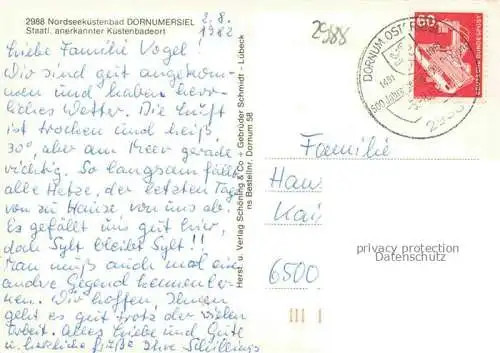 2988 Nordseeküstenbad DORNUMERSIEL
Staatl. anerkannter Küstenbadeort
2.8.
1982
Liebe Familie Vogel!
Wir sind gut angekom-
men und haben herr-
liches Wetter. Die Luft
ist trocken und heiß,
30°, aber am Meer gerade
richtig. So langsam fällt
alle Hetze, der letzten Tage
von zu Hause, von uns ab.
Es gefällt uns gut hier,
doch Sylt bleibt Sylt!!
Man muß auch mal eine
andre Gegend kennenler-
nen. Wir hoffen, Ihnen
geht es gut trotz der vielen
Arbeit. Alles Liebe und Gute
u. herzliche Grüße Ihre Schillings
Herst. u. Verlag Schöning & Co + Gebrüder Schmidt - Lübeck
ns Bestellnr. Dornum 58
2988
DORNUM OSTFRIESL
600 Jahre
60
DEUTSCHE BUNDESPOST
Familie
Han
Kai
6500
privacy protection
Datenschutz